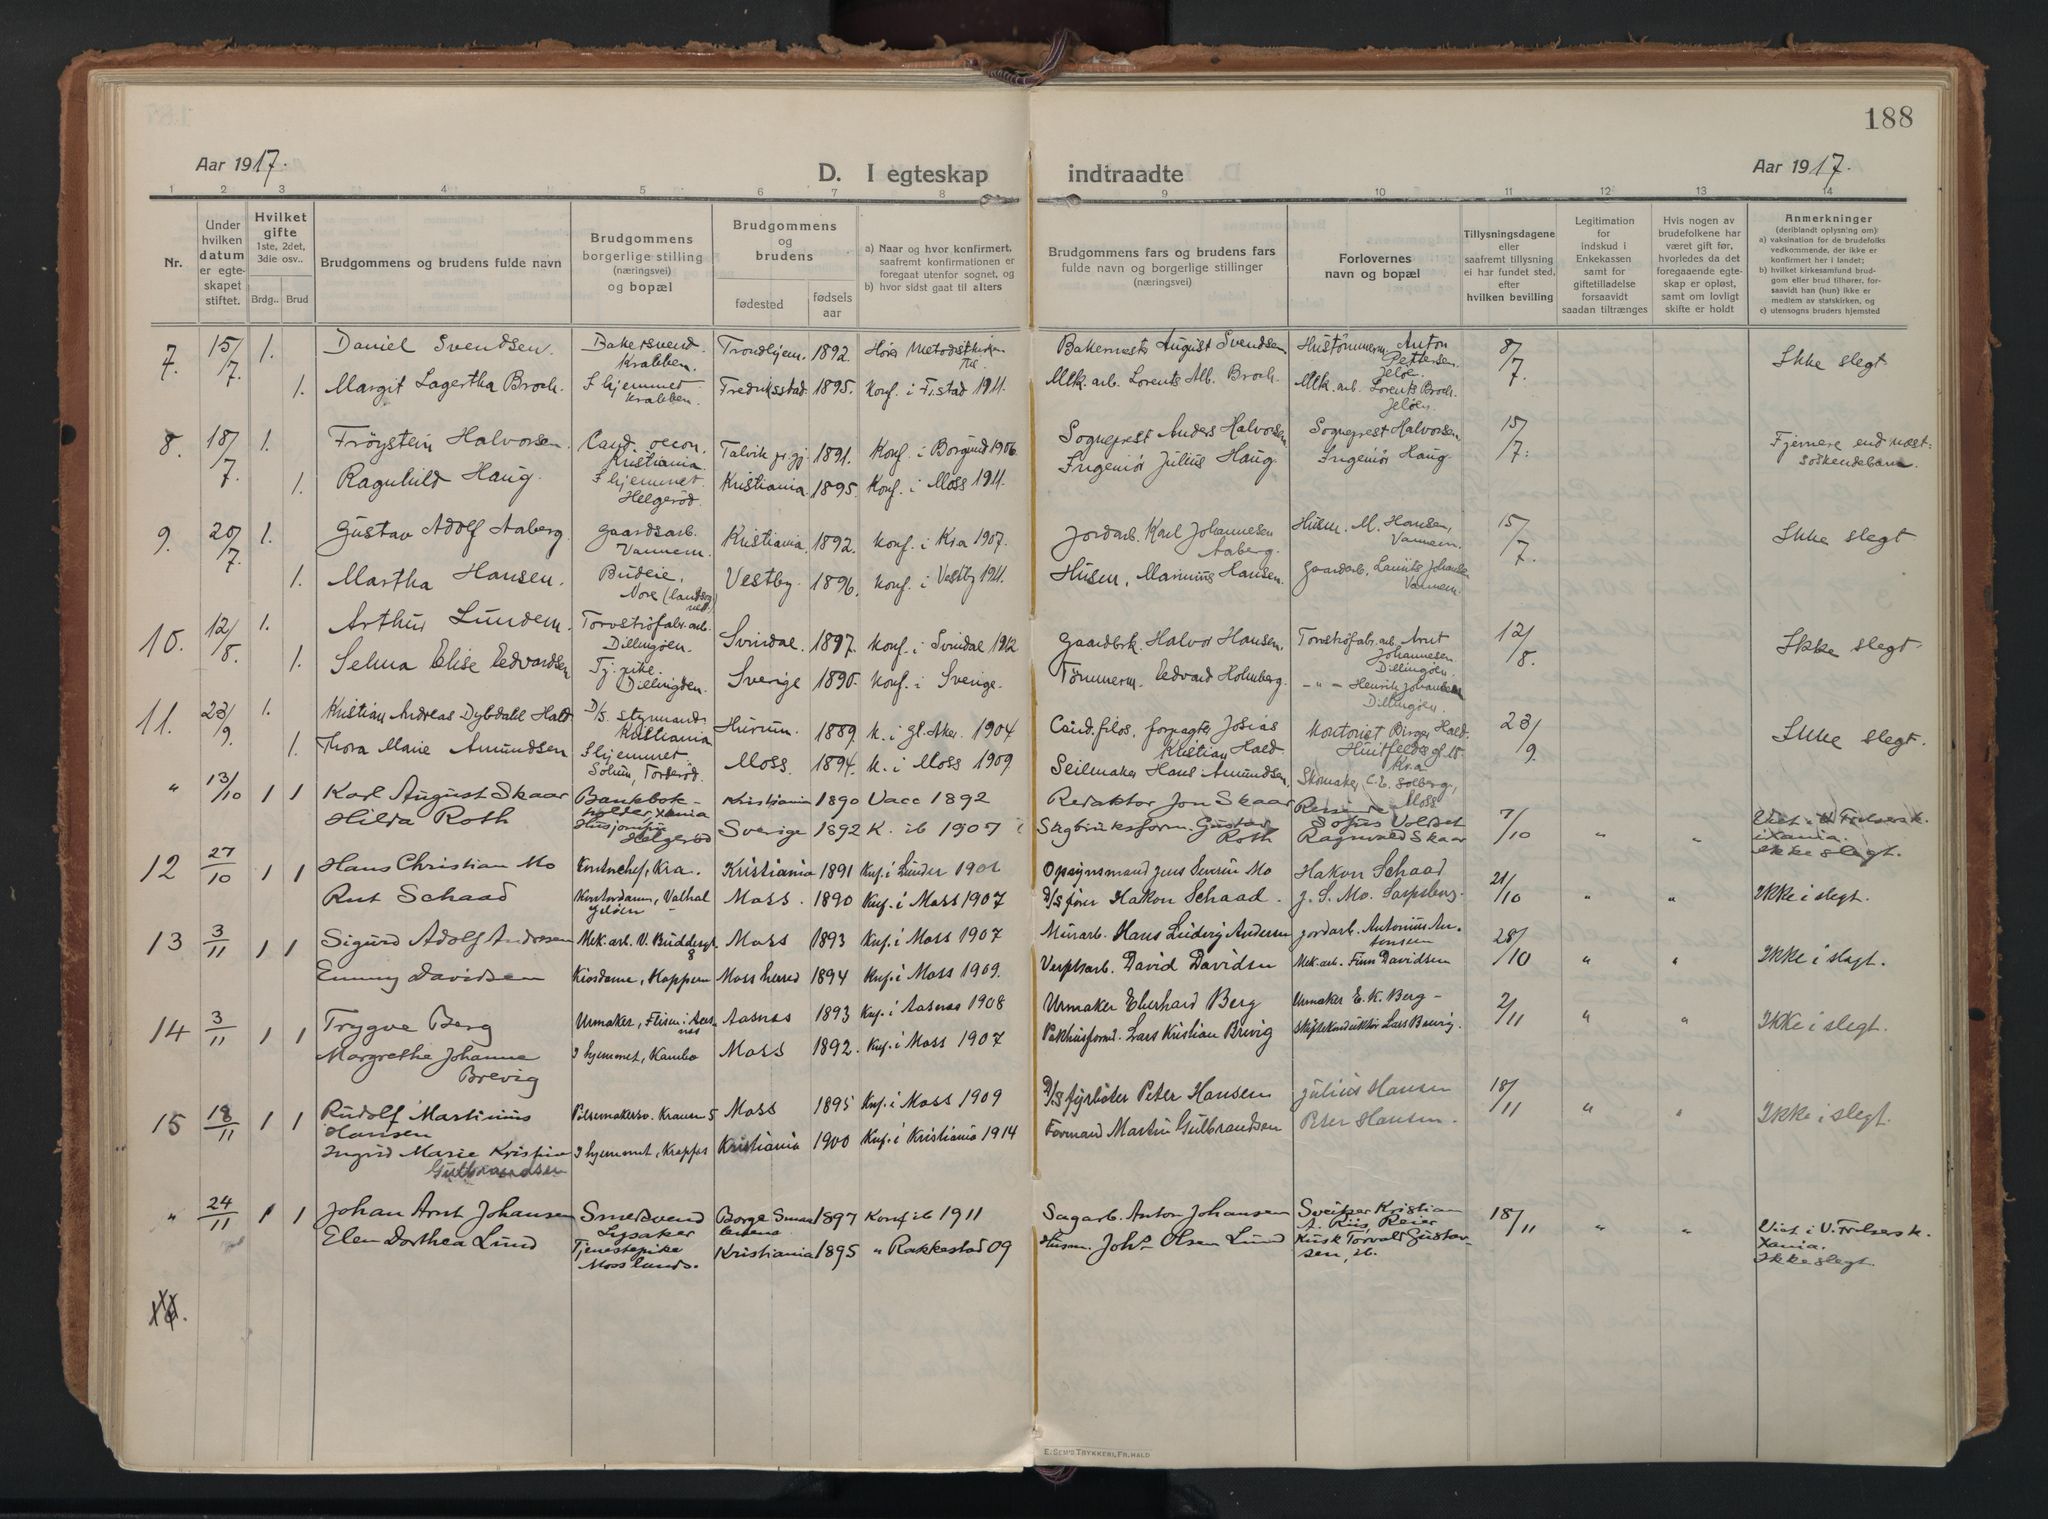 188
Aar 1917.
D. I egteskap
indtraadte
Aar 1917.
1 2 3 4 5 6 7 8 9 10 11 12 13 14
Nr.
Under hvilken datum er egteskapet stiftet.
Hvilket gifte 1ste, 2det, 3die osv..
Brdg.. Brud
Brudgommens og brudens fulde navn
Brudgommens borgerlige stilling (næringsvei) og bopæl
Brudgommens og brudens
fødested
fødsels aar
a) Naar og hvor konfirmert, saafremt konfirmationen er foregaat utenfor sognet, og
b) hvor sidst gaat til alters
Brudgommens fars og brudens fars fulde navn og borgerlige stillinger (næringsvei)
Forlovernes navn og bopæl
Tillysningsdagene eller saafremt tillysning ei har fundet sted, efter hvilken bevilling
Legitimation for indskud i Enkekassen samt for giftetilladelse forsaavidt saadan tiltrænges
Hvis nogen av brudefolkene har været gift før, hvorledes da det foregaaende egteskap er opløst, samt om lovligt skifte er holdt
Anmerkninger (deriblandt oplysning om)
a) vaksination for de brudefolks vedkommende, der ikke er konfirmert her i landet;
b) hvilket kirkesamfund brudgom eller brud tilhører, forsaavidt han (hun) ikke er medlem av statskirken, og
c) utensogns bruders hjemsted
7. 15/7. 1. Daniel Svendsen. Bakersvend. Krabben. Trondhjem. 1892. Bakermester August Svendsen Anton Pettersen. Jeløe. 8/7. Ikke slegt
1. Margit Lagertha Broch. I hjemmet Krabben. Fredriksstad. 1895. Konf. i Fr.stad 1911. Mek. arb. Lorents Alb. Broch. Mek. arb. Lorents Broch. Jeløen.
8. 18/7. 1. Frøystein Halvorsen. Cand. oecon. Kristiania. Talvik pr.gj. 1891. Konf. i Borgund 1906. Sogneprest Anders Halvorsen Sogneprest Halvorsen 15/7. Fjernere end næst-søskendebarn.
1. Ragnhild Haug. I hjemmet. Helgerød. Kristiania. 1895. Konf. i Moss 1911. Ingeniør Julius Haug. Ingeniør Haug
9. 20/7. 1. Gustav Adolf Aaberg. Gaardsarb. Vannem. Kristiania. 1892. Konf. i Kra 1907. Jordarb. Karl Johannesen Aaberg. Husm. M. Hansen, Vannem. 15/7. Ikke slegt
1. Martha Hansen. Budeie, Nore (landsognet.) Vestby. 1896. Konf. i Vestby 1911. Husm. Marinius Hansen. Gaardarb. Laurits Johansen Vannem.
10. 12/8. 1. Arthur Lundem. Torvströfabr. arb. Dillingøen. Svindal. 1897. Konf. i Svindal 1912 Gaardbrk. Halvor Hansen. Torvströfabr. arb. Arnt Johannesen. Dillingøen. 12/8. Ikke slegt.
1. Selma Elise Edvardsen Tj. pike. Dillingøen. Sverige 1890. Konf. i Sverige. Tømmerm. Edvard Holmberg. — " — Henrik Johansen Dillingøen.
11. 23/9. 1. Kristian Andreas Dybdahl Hald D/s. styrmand. Kristiania Hurum. 1889. K. i gl. Aker. 1904 Cand. filos, forpagter Josias Kristian Hald Kontorist Birger Hald. Kr.a 23/9. Ikke slegt.
1. Thora Marie Amundsen I hjemmet. Solum, Torderød. Moss. 1894. K. i Moss 1909. Seilmaker Hans Amundsen. Skomaker C. E. Solberg, Moss
" 13/10 1 1 Karl August Skaar Bankbokholder, Xania Kristiania 1890 Vacc 1892 Redaktor Jon Skaar Sofus Voldset 7/10 " " Viet i V. Frelsersk. i Xania. Ikke slegt.
Hilda Roth Husjomfru Helgerød Sverige 1892 K. ib 1907 Sagbruksform. Gustav Roth Ragnvald Skaar
12 27/10 1 1 Hans Christian Mo Kontorchef, Kra. Kristiania 1891 Knf. i Lunder 1906 Opsynsmand Jens Severin Mo Hakon Schaad 21/10 " " Ikke i slegt.
Rut Schaad Kontordame, Valhal Jeløen Moss. 1890 Knf. i Moss 1907 D/s fører Hakon Schaad. J. S. Mo. Sarpsborg.
13 3/11 1 1 Sigurd Adolf Andersen Mek. arb. V. Buddesgt 8 Moss 1893 Knf. i Moss 1907 Murarb. Hans Ludvig Andersen Jordarb. Antonius Antonsen 28/10 " " Ikke i slegt.
Emmy Davidsen Kiosdame, Kappern Moss herred 1894 Knf. i Moss 1909. Verftsarb. David Davidsen Mek. arb. Finn Davidsen
14 3/11 1 1 Trygve Berg Urmaker, Flisen i Aasnes Aasnes 1893 Knf. i Aasnes 1908 Urmaker Eberhard Berg Urmaker E. K. Berg - 2/11 " " Ikke i slegt.
Margrethe Johanne Brevig I hjemmet, Kambo Moss 1892. Knf. i Moss 1907 Pakhusformd. Lars Kristian Brevig Lars Brevig.
15 18/11 1 1 Rudolf Martinius Hansen Pølsemakersv. Kransen 5 Moss 1895 Knf. i Moss 1909 D/s fyrbøter Peter Hansen Julius Hansen 18/11 " " Ikke i slegt.
Ingrid Marie Kristine Gulbrandsen I hjemmet, Krapfos Kristiania 1900 Knf. i Kristiania 1914 Formand Martin Gulbrandsen Peter Hansen.
" 24/11 1 1 Johan Arnt Johansen Smedsvend Lysaker Borge Smaalenene 1897 Konf ib 1911 Sagarb. Anton Johansen Sveitser Kristian A. Riis, Reier 18/11 " " Viet i V. Frelsersk. Xania. Ikke slegt.
Elen Dorthea Lund Tjenestepike Moss lands. Kristiania 1895 " Rakkestad 09 Husm. Johs Olsen Lund Kusk Torvald Gustavsen, ib.
E. SEM'S TRYKKERI, FR.HALD